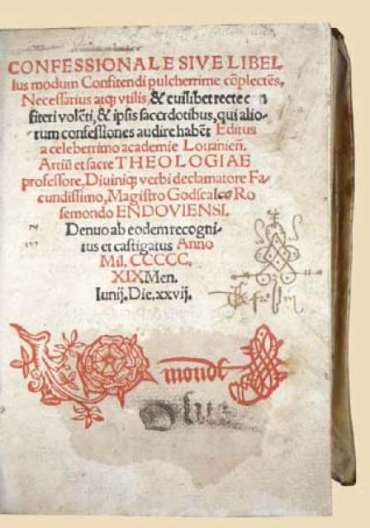 CONFESSIONALE SIVE LIBEL
lus modum Confitendi pulcherrime cōplectēs,
Necessarius atqȝ vtilis & cuilibet recte con
fiteri volēti, & ipsis sacerdotibus, qui alio-
rum confessiones audire habēt Editus
a celeberrimo academie Louanień.
Artiū et sacre THEOLOGIAE
professore, Diuiniqȝ verbi declamatore Fa
cundissimo, Magistro Godscalco Ro
semondo ENDOVIENSI.
Denuo ab eodem recogni-
tus et castigatus Anno
Mil. CCCCC.
XIX Men.
Iunij. Die. xxvij.
mondt